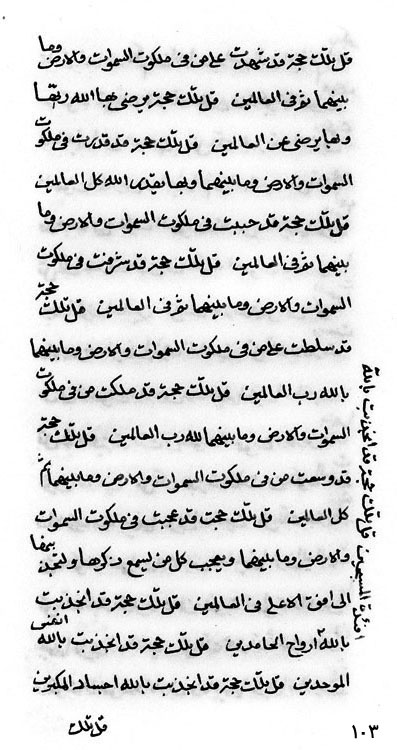 قل تلك حجة قد شهدت على من في ملكوت السموات والارض وما
بينهما ثم في العالمين قل تلك حجة يرضى بها الله ربها
وبها يرضى عن العالمين قل تلك حجة قد قدرت في ملكوت
السموات والارض وما بينهما وبها يقدر الله كل العالمين
قل تلك حجة قد حببت في ملكوت السموات والارض وما
بينهما ثم في العالمين قل تلك حجة قد شرفت في ملكوت
السموات والارض وما بينهما ثم في العالمين قل تلك حجة
قد سلطت على من في ملكوت السموات والارض وما بينهما
بالله رب العالمين قل تلك حجة قد ملكت من في ملكوت
السموات والارض وما بينهما لله رب العالمين قل تلك حجة
قد وسعت من في ملكوت السموات والارض وما بينهما ثم
كل العالمين قل تلك حجت قد عجبت في ملكوت السموات
والارض وما بينهما ويعجب كل من يسمع ذكرها ولتجذبن بها
الى افق الاعلى في العالمين قل تلك حجة قد انجذبت
بالله ارواح الحامدين قل تلك حجة قد انجذبت بالله انفس
الموحدين قل تلك حجة قد انجذبت بالله اجساد المكبرين
افئدة المسبحين قل تلك حجة قد انجذبت بالله
قل تلك
١٠٣